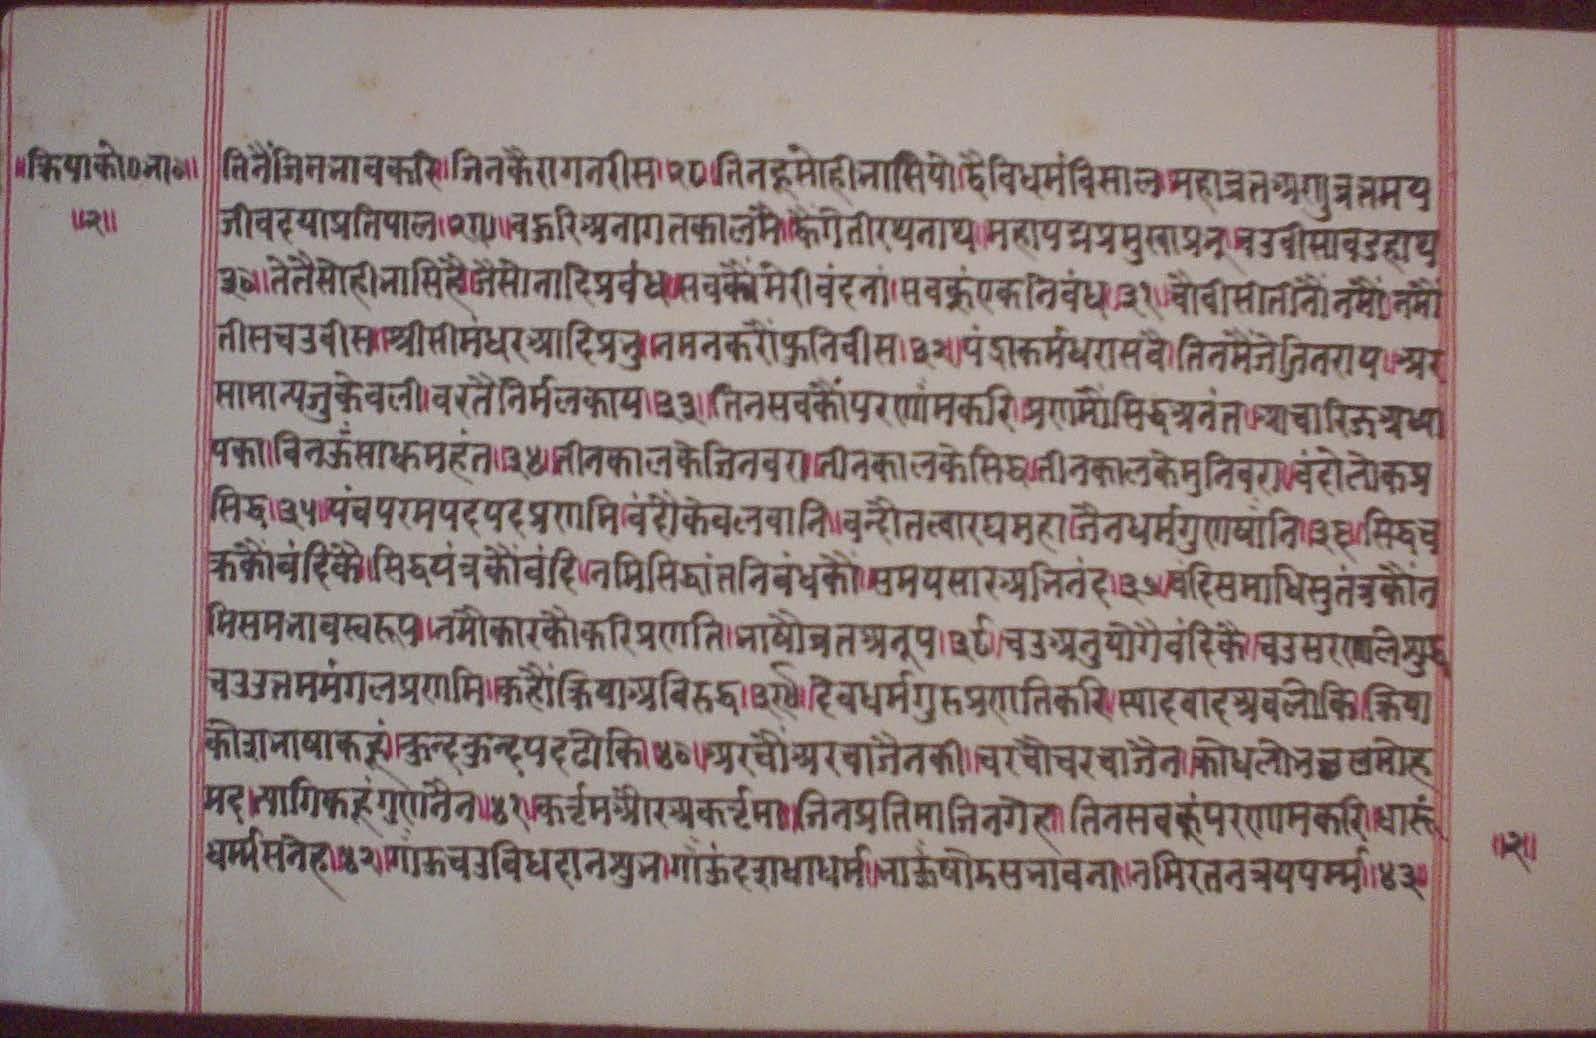 ॥क्रियाको०भा०॥
॥२॥
तिनैंजिनभावकरि।जिनकैरागनरीस।२८।तिनहूमोहीभासियो।द्वैविधर्मविसाल।महाव्रतअणुव्रतमय
जीवदयाप्रतिपाल।२९॥बऊरिअनागतकालमैं।ह्वैंगेतीरथनाथ।महापद्मप्रमुखाप्रभू।चउवीसावडहाथ
३०।तेतैसोहीभासिहै।जैसोनादिप्रबंध।सबकौंमेरीवंदनां।सबकूंएकनिबंध।३१।चौवीसीतीनौंनमौं।नमौं
तीसचउवीस।श्रीसीमंधरआदिप्रभु।नमनकरौंफुनिवीस।३२।पंद्राकर्मधरासबै।तिनमैंजेजिनराय।अर
सामान्यजुकेवली।वरतैनिर्मलकाय।३३।तिनसबकौंपरणांमकरि।प्रणमौंसिद्धअनंत।आचारिजअध्या
पका।विनऊंसाधमहंत।३४।तीनकालकेजिनवरा।तीनकालकेसिद्ध।तीनकालकेमुनिवरा।वंदोलोकप्र
सिद्ध।३५।पंचपरमपदपदप्रणमि।वंदौंकेवलवानि।वन्दौतत्वारथमहा।जैनधर्मगुणषांनि।३६।सिद्धच
क्रकौंवंदिकै।सिद्धयंत्रकौंवंदि।नमिसिद्धांतनिबंधकौं।समयसारअभिनंद।३७।वंदिसमाधिसुतंत्रकौंन
मिसमभावस्वरूप।नमौकारकौंकरिप्रणति।भाषौंव्रतअनूप।३८।चउअनुयोगैवंदिकै।चउसरणालेशुद्ध
चउउत्तममंगलप्रणमि।कहौंक्रियाअविरुद्ध।३९।देवधर्मगुरुप्रणतिकरि।स्यादवादअवलोकि।क्रिया
कोशभाषाकहूं।कुन्दकुन्दपदढोकि।४०।अरचौंअरचाजैनकी।चरचौंचरचाजैन।क्रोधलोभछलमोह
मद।त्यागिकहूंगुणनैन।४१।कर्तृमऔरअकर्तृमा।जिनप्रतिमाजिनगेह।तिनसबकूंपरणामकरि।धारूं
धर्म्मसनेह।४२।गाँऊचउविधदानशुभ।गाँऊंदशधाधर्म।भाऊंषोडसभावना।नमिरतनत्रयपर्म्म।४३॥
॥२॥